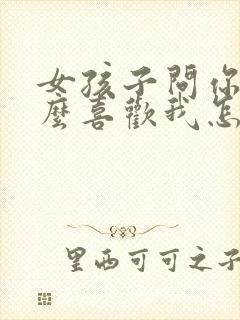 女孩子問你
麼喜歡我怎
里西可可之子